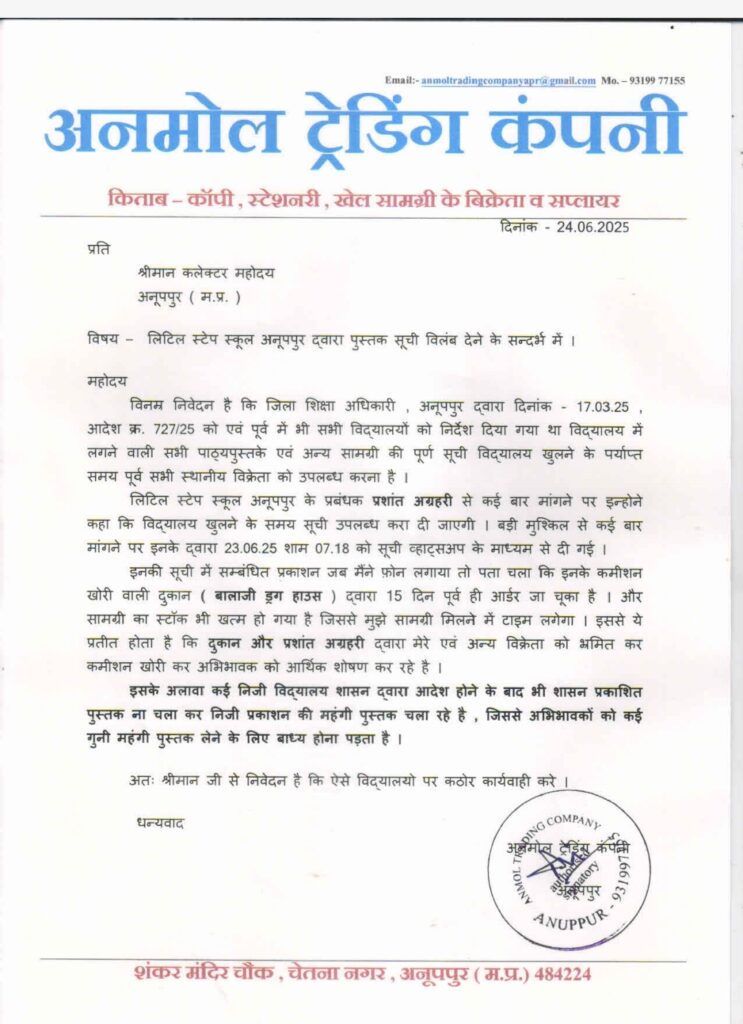 Email:- anmoltradingcompanyapr@gmail.com Mo. – 93199 77155
अनमोल ट्रेडिंग कंपनी
किताब – कॉपी , स्टेशनरी , खेल सामग्री के बिक्रेता व सप्लायर
दिनांक - 24.06.2025
प्रति
श्रीमान कलेक्टर महोदय
अनूपपुर ( म.प्र. )
विषय – लिटिल स्टेप स्कूल अनूपपुर द्वारा पुस्तक सूची विलंब देने के सन्दर्भ में ।
महोदय
विनम्र निवेदन है कि जिला शिक्षा अधिकारी , अनूपपुर द्वारा दिनांक - 17.03.25 ,
आदेश क्र. 727/25 को एवं पूर्व में भी सभी विद्यालयों को निर्देश दिया गया था विद्यालय में
लगने वाली सभी पाठ्यपुस्तके एवं अन्य सामग्री की पूर्ण सूची विद्यालय खुलने के पर्याप्त
समय पूर्व सभी स्थानीय विक्रेता को उपलब्ध करना है ।
लिटिल स्टेप स्कूल अनूपपुर के प्रबंधक प्रशांत अग्रहरी से कई बार मांगने पर इन्होने
कहा कि विद्यालय खुलने के समय सूची उपलब्ध करा दी जाएगी । बड़ी मुश्किल से कई बार
मांगने पर इनके द्वारा 23.06.25 शाम 07.18 को सूची व्हाट्सअप के माध्यम से दी गई ।
इनकी सूची में सम्बंधित प्रकाशन जब मैंने फ़ोन लगाया तो पता चला कि इनके कमीशन
खोरी वाली दुकान ( बालाजी ड्रग हाउस ) द्वारा 15 दिन पूर्व ही आर्डर जा चूका है । और
सामग्री का स्टॉक भी खत्म हो गया है जिससे मुझे सामग्री मिलने में टाइम लगेगा । इससे ये
प्रतीत होता है कि दुकान और प्रशांत अग्रहरी द्वारा मेरे एवं अन्य विक्रेता को भ्रमित कर
कमीशन खोरी कर अभिभावक को आर्थिक शोषण कर रहे है ।
इसके अलावा कई निजी विद्यालय शासन द्वारा आदेश होने के बाद भी शासन प्रकाशित
पुस्तक ना चला कर निजी प्रकाशन की महंगी पुस्तक चला रहे है , जिससे अभिभावकों को कई
गुनी महंगी पुस्तक लेने के लिए बाध्य होना पड़ता है ।
अतः श्रीमान जी से निवेदन है कि ऐसे विद्यालयो पर कठोर कार्यवाही करे ।
धन्यवाद
अनमोल ट्रेडिंग कंपनी
अनूपपुर
ANMOL TRADING COMPANY
authorised
signatory
ANUPPUR -
शंकर मंदिर चौक , चेतना नगर , अनूपपुर ( म.प्र.) 484224